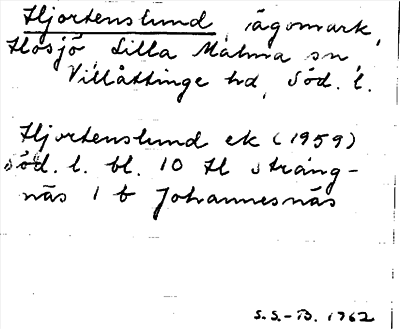 Hjortenslund, ägomark,
Hosjö, Lilla Malma sn,
Villåttinge hd, Söd. l.
Hjortenslund ek (1959)
Söd. l. bl. 10 H Sträng-
näs 1 b Johannesnäs
S.S.-B. 1962